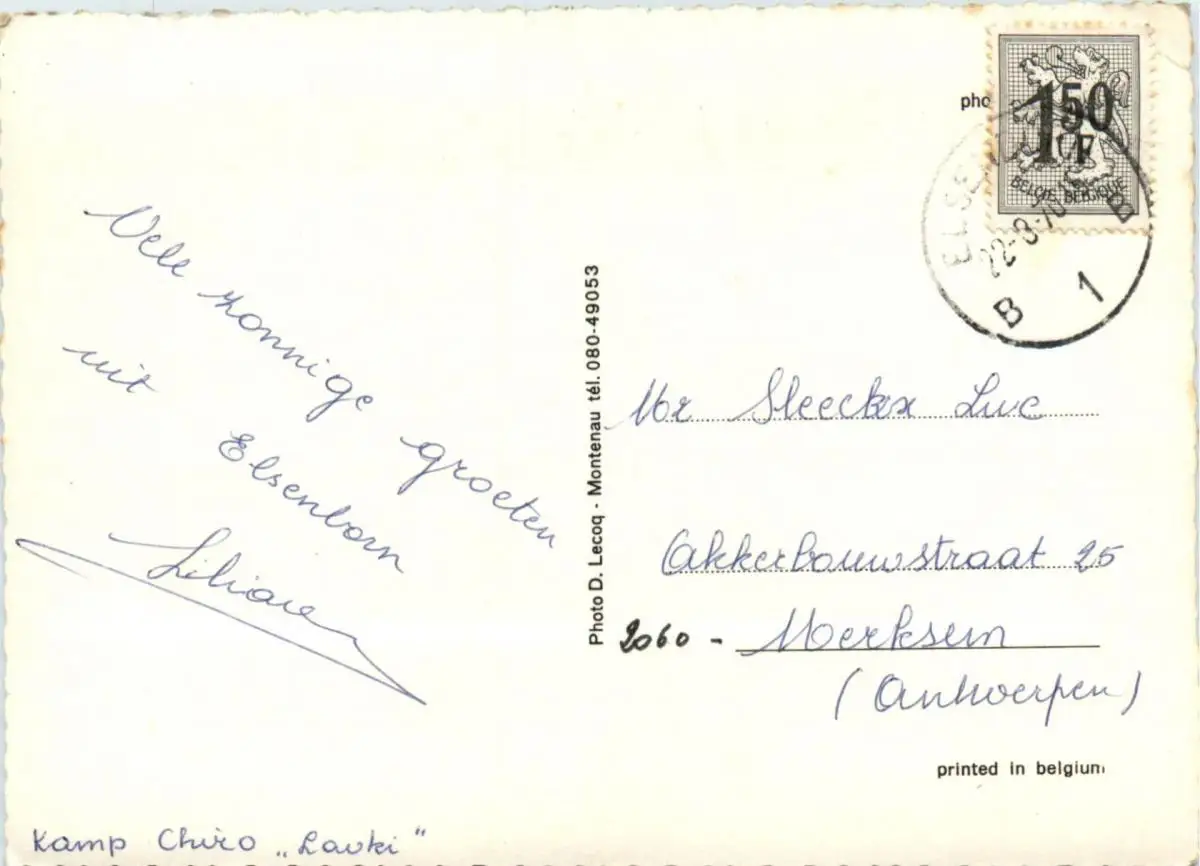 Vele zonnige groeten
uit
Elsenborn
Liliane
Kamp Chiro „Lavki"
Photo D. Lecoq - Montenau tél. 080-49053
pho
1,50
F
BELGIË BELGIQUE
22-8-70
B
B 1
Mr Sleeckx Luc
Akkerbouwstraat 25
2060 - Merksem
(Antwerpen)
printed in belgium